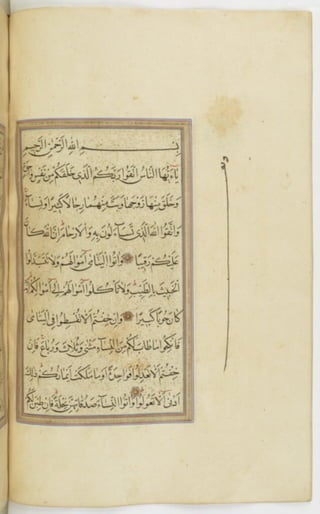 بِسْمِ اللهِ الرَّحْمٰنِ الرَّحِيمِ
يَاءَيُّهَا النَّاسُ اتَّقُوا رَبَّكُمُ الَّذِي خَلَقَكُمْ مِنْ نَفْسٍ وَاحِدَةٍ
وَخَلَقَ مِنْهَا زَوْجَهَا وَبَثَّ مِنْهُمَا رِجَالًا كَثِيرًا وَنِسَاءً
وَاتَّقُوا اللهَ الَّذِي تَسَاءَلُونَ بِهِ وَالْاَرْحَامَ اِنَّ اللهَ كَانَ
عَلَيْكُمْ رَقِيبًا وَاٰتُوا الْيَتَامٰى اَمْوَالَهُمْ وَلَا تَتَبَدَّلُوا
الْخَبِيثَ بِالطَّيِّبِ وَلَا تَاْكُلُوا اَمْوَالَهُمْ اِلٰى اَمْوَالِكُمْ اِنَّهُ
كَانَ حُوبًا كَبِيرًا وَاِنْ خِفْتُمْ اَلَّا تُقْسِطُوا فِي الْيَتَامٰى
فَانْكِحُوا مَا طَابَ لَكُمْ مِنَ النِّسَاءِ مَثْنٰى وَثُلَاثَ وَرُبَاعَ فَاِنْ
خِفْتُمْ اَلَّا تَعْدِلُوا فَوَاحِدَةً اَوْ مَا مَلَكَتْ اَيْمَانُكُمْ ذٰلِكَ
اَدْنٰى اَلَّا تَعُولُوا وَاٰتُوا النِّسَاءَ صَدُقَاتِهِنَّ نِحْلَةً فَاِنْ طِبْنَ لَكُمْ